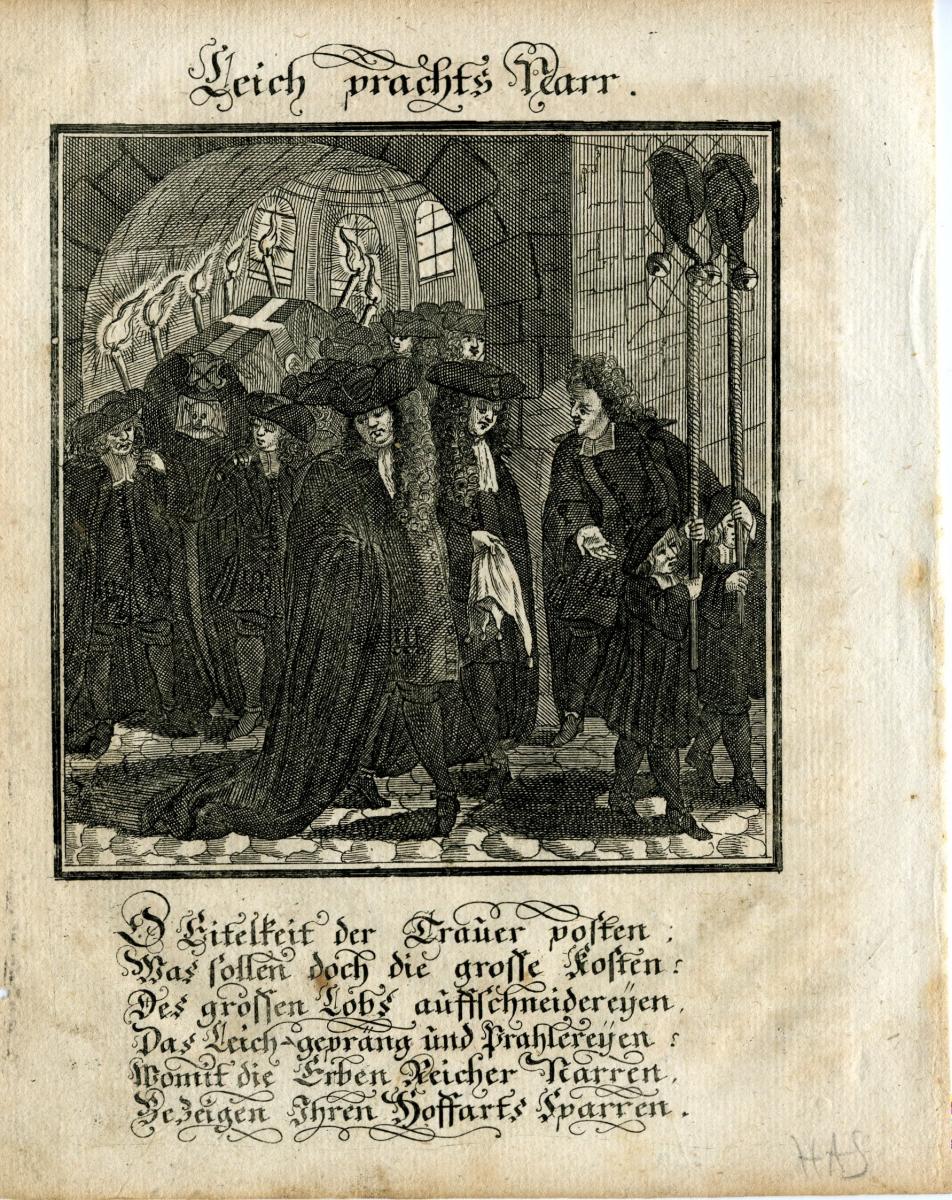 Leich prachts Narr.
O Eitelkeit der Traůer posten:
Was sollen doch die grosse Kosten:
Des grossen Lobs aůffschneidereÿen,
Das Leich-gepräng ůnd Prahlereÿen:
Womit die Erben Reicher Narren,
Bezeigen Ihren Hoffarts Sparren.
HAS